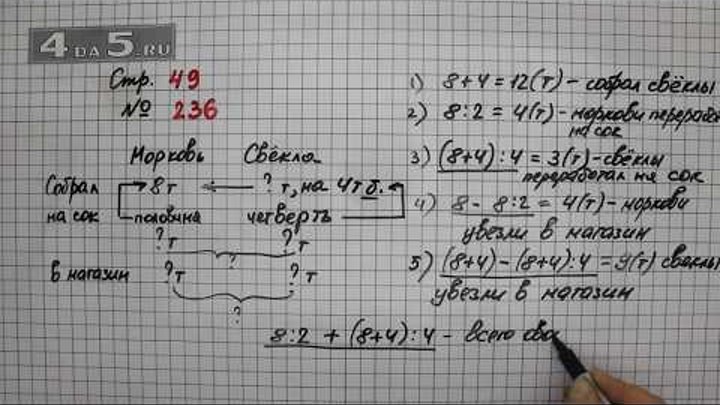 4 DA 5.RU
Стр. 49
№ 236
Морковь Свёкла
Собрал 8т ? т, на 4т б.
на сок половина четверть
?т ?т
?
в магазин ?т ?т
?
1) 8+4=12(т)-собрал свёклы
2) 8:2 = 4(т)-моркови перерабо
на сок
3) (8+4):4 = 3(т)-свёклы
переработал на сок
4) 8 - 8:2 = 4(т)-моркови
увезли в магазин
5) (8+4)-(8+4):4 = 9(т) свёклы
увезли в магазин
8:2 + (8+4):4 - всего ово